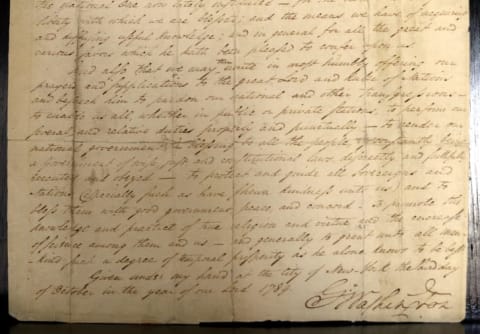 the national One now lately instituted — for the
liberty with which we are blessed; and the means we have of acquiring
and diffusing useful knowledge; and in general for all the great and
various favors which he hath been pleased to confer upon us.
And also that we may then unite in most humbly offering our
prayers and supplications to the great Lord and Ruler of Nations
and beseech him to pardon our national and other transgressions —
to enable us all, whether in public or private stations, to perform our
several and relative duties properly and punctually — to render our
national government a blessing to all the people, by constantly being
a government of wise, just and constitutional laws, discreetly and faithfully
executed and obeyed — to protect and guide all Sovereigns and
Nations (especially such as have shewn kindness unto us) and to
bless them with good government, peace, and concord — To promote the
knowledge and practice of true religion and virtue, and the encrease
of science among them and us — and generally to grant unto all man
kind such a degree of temporal prosperity as he alone knows to be best
Given under my hand at the City of New-York the third day
of October in the year of our Lord 1789.
G:Washington